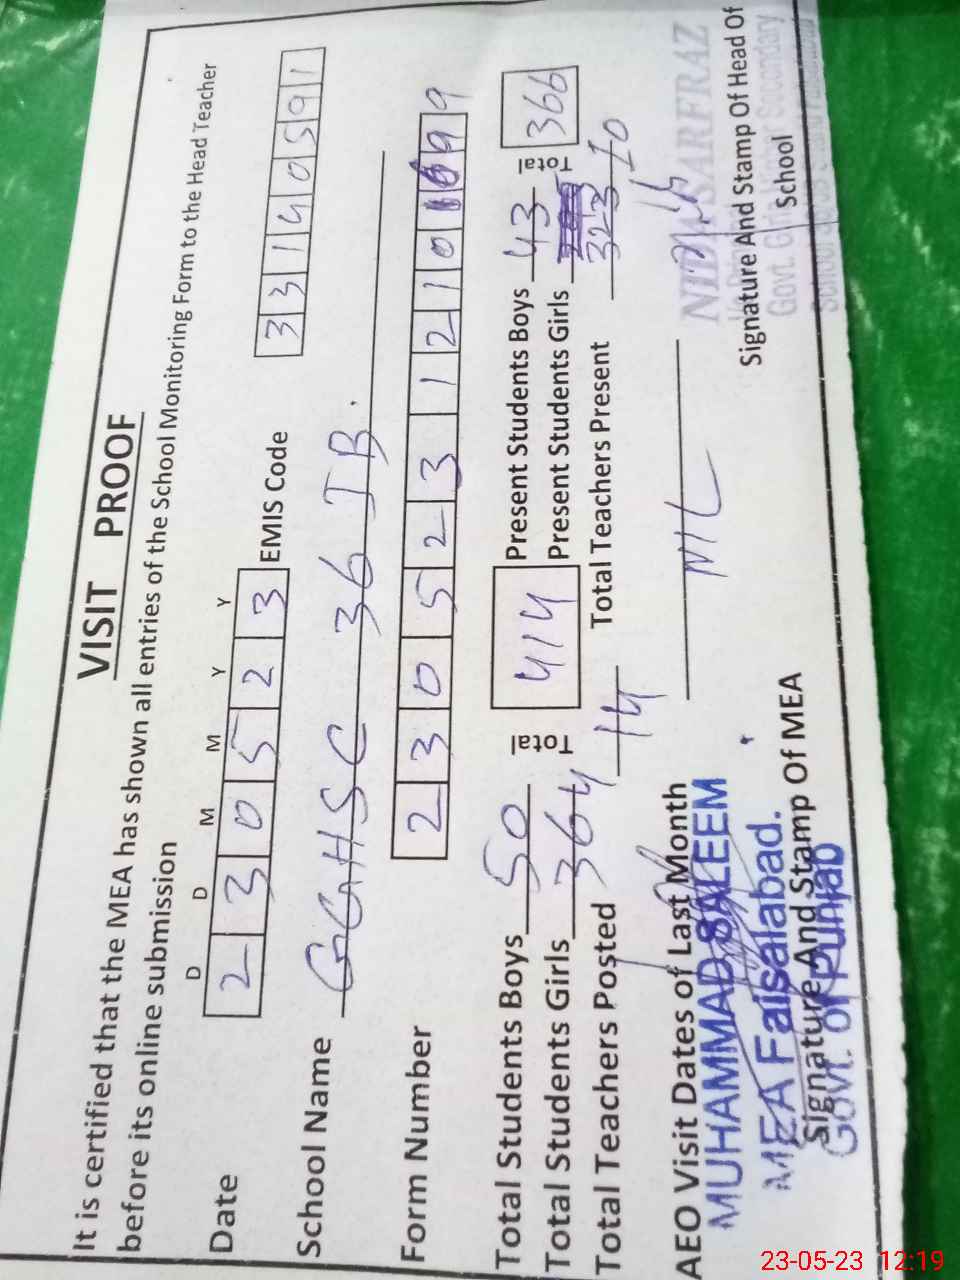 VISIT PROOF
It is certified that the MEA has shown all entries of the School Monitoring Form to the Head Teacher
before its online submission
D D M M Y Y
Date 2 3 0 5 2 3 EMIS Code 3 3 1 4 0 5 9 1
School Name GGHSC 36 JB.
Form Number 2 3 0 5 2 3 1 2 1 0 9 9
Total Students Boys 50 Total 414 Present Students Boys 43 Total 366
Total Students Girls 364 Present Students Girls 323
Total Teachers Posted 14 Total Teachers Present 10
AEO Visit Dates of Last Month NIL
MUHAMMAD SALEEM
MEA Faisalabad.
Govt. of Punjab
Signature And Stamp Of MEA
NIDA SARFRAZ
Govt. Girls Higher Secondary
Signature And Stamp Of Head Of
School
23-05-23 12:19